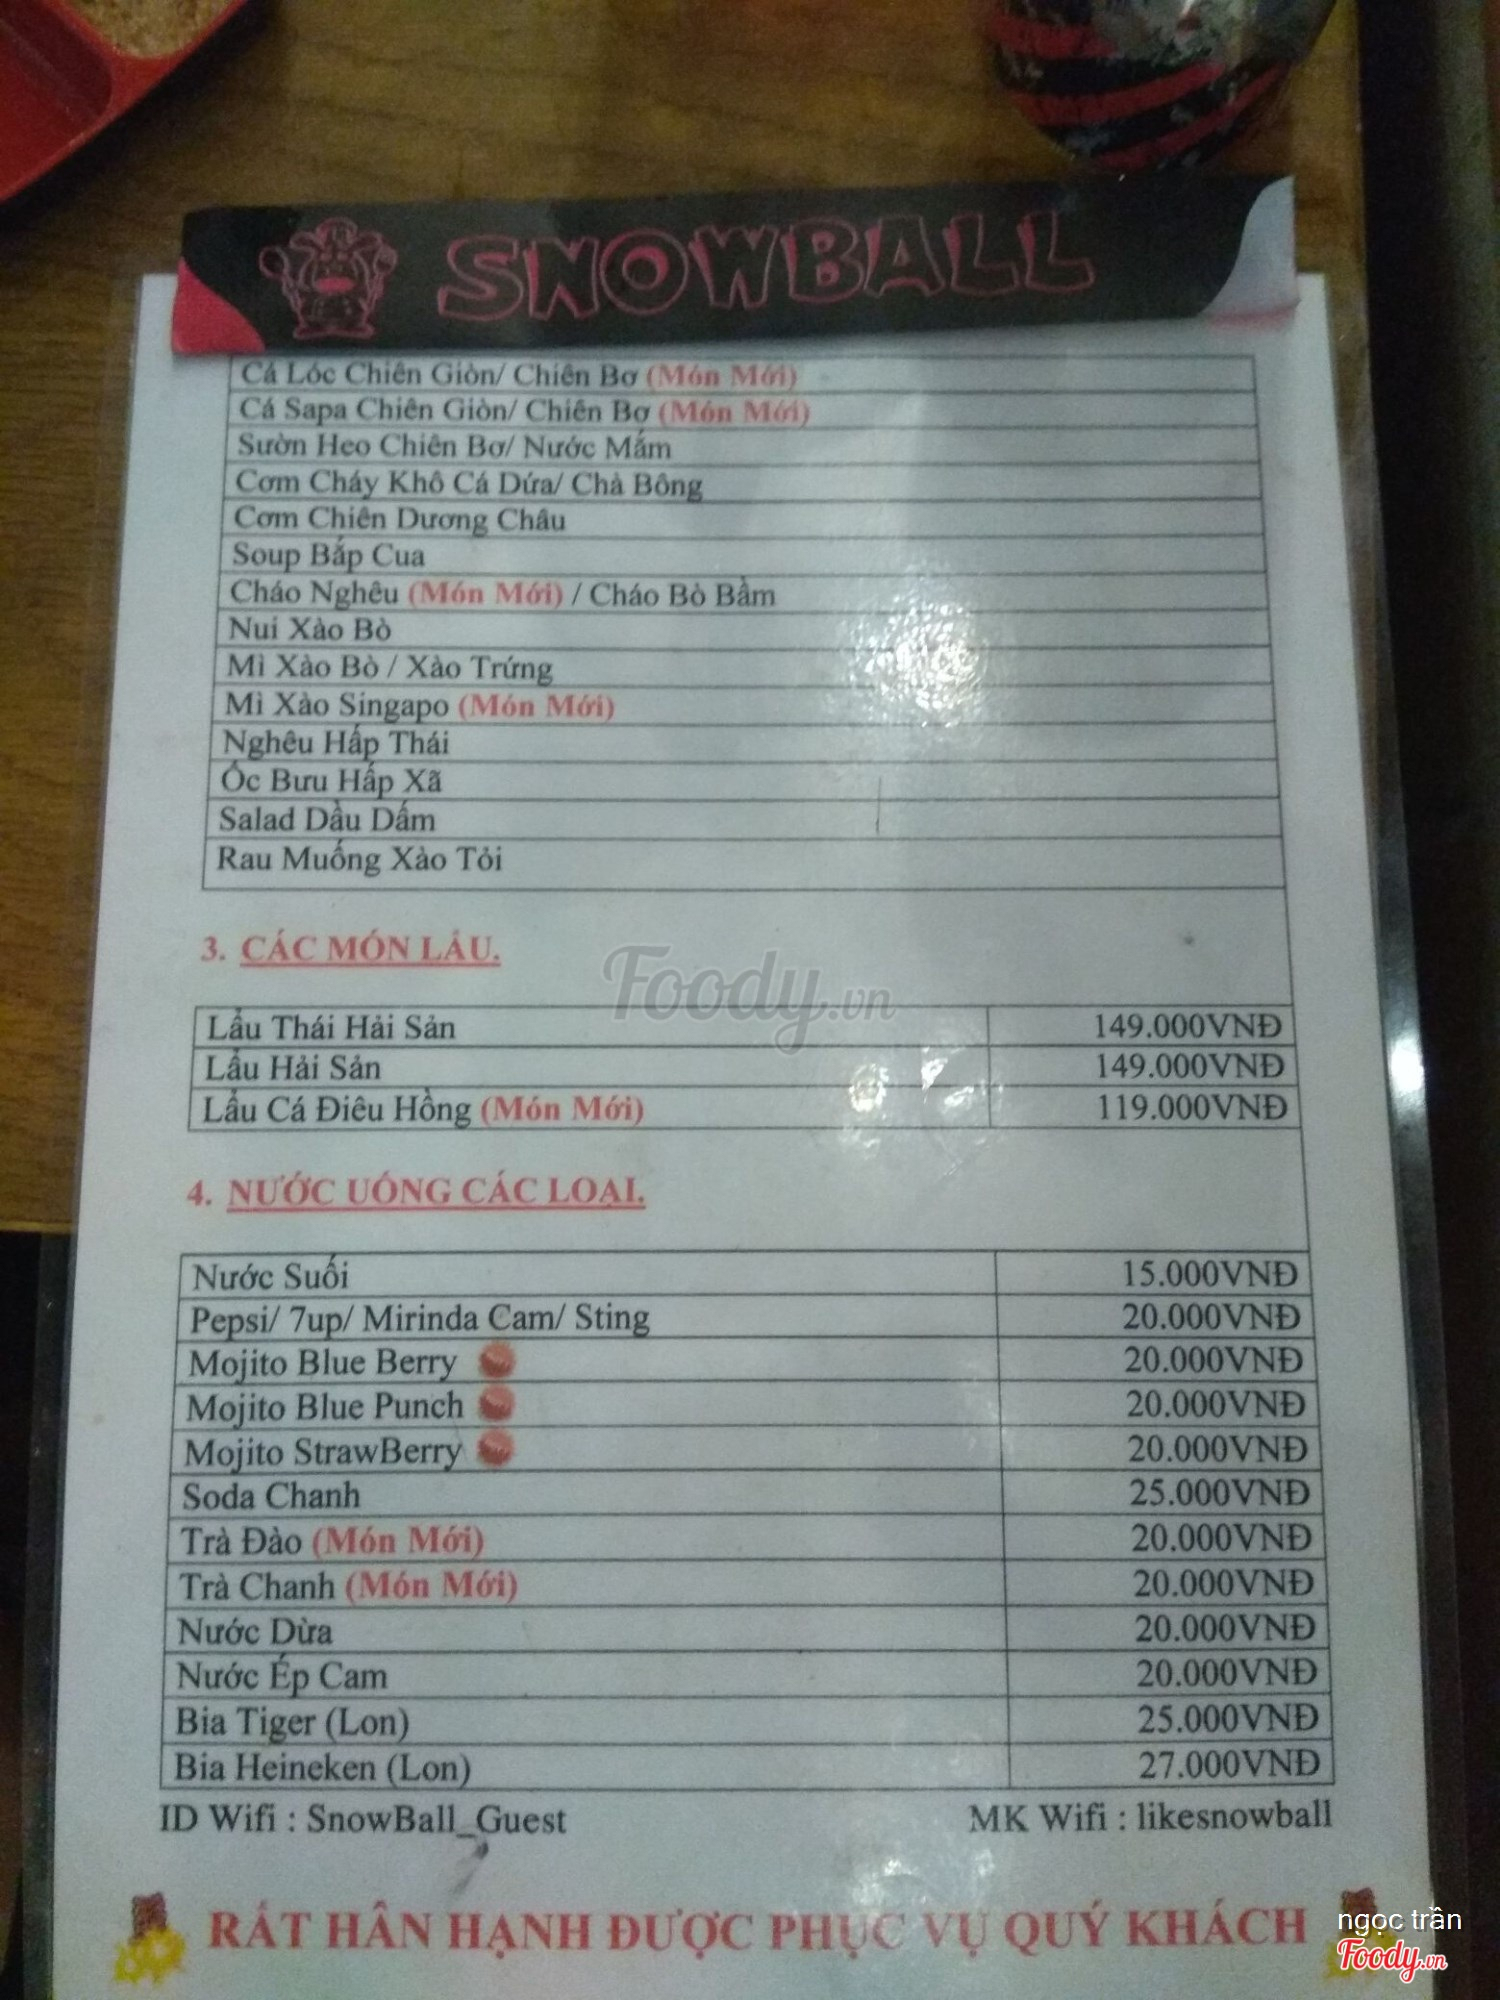 SNOWBALL
Cá Lóc Chiên Giòn/ Chiên Bơ (Món Mới)
Cá Sapa Chiên Giòn/ Chiên Bơ (Món Mới)
Sườn Heo Chiên Bơ/ Nước Mắm
Cơm Cháy Khô Cá Dứa/ Chà Bông
Cơm Chiên Dương Châu
Soup Bắp Cua
Cháo Nghêu (Món Mới) / Cháo Bò Bằm
Nui Xào Bò
Mì Xào Bò / Xào Trứng
Mì Xào Singapo (Món Mới)
Nghêu Hấp Thái
Ốc Bươu Hấp Xã
Salad Dầu Dấm
Rau Muống Xào Tỏi
3. CÁC MÓN LẨU.
Foody.vn
Lẩu Thái Hải Sản 149.000VNĐ
Lẩu Hải Sản 149.000VNĐ
Lẩu Cá Điêu Hồng (Món Mới) 119.000VNĐ
4. NƯỚC UỐNG CÁC LOẠI.
Nước Suối 15.000VNĐ
Pepsi/ 7up/ Mirinda Cam/ Sting 20.000VNĐ
Mojito Blue Berry 20.000VNĐ
Mojito Blue Punch 20.000VNĐ
Mojito StrawBerry 20.000VNĐ
Soda Chanh 25.000VNĐ
Trà Đào (Món Mới) 20.000VNĐ
Trà Chanh (Món Mới) 20.000VNĐ
Nước Dừa 20.000VNĐ
Nước Ép Cam 20.000VNĐ
Bia Tiger (Lon) 25.000VNĐ
Bia Heineken (Lon) 27.000VNĐ
ID Wifi : SnowBall_Guest MK Wifi : likesnowball
RẤT HÂN HẠNH ĐƯỢC PHỤC VỤ QUÝ KHÁCH
ngọc trần
Foody.vn